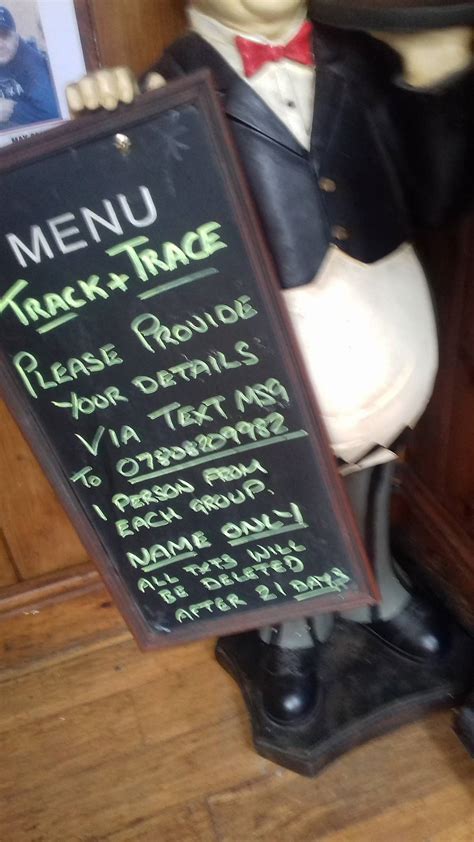 MENU
TRACK + TRACE
PLEASE PROVIDE
YOUR DETAILS
VIA TEXT MSG
TO 07808209982
1 PERSON FROM
EACH GROUP.
NAME ONLY
ALL TXTS WILL
BE DELETED
AFTER 21 DAYS